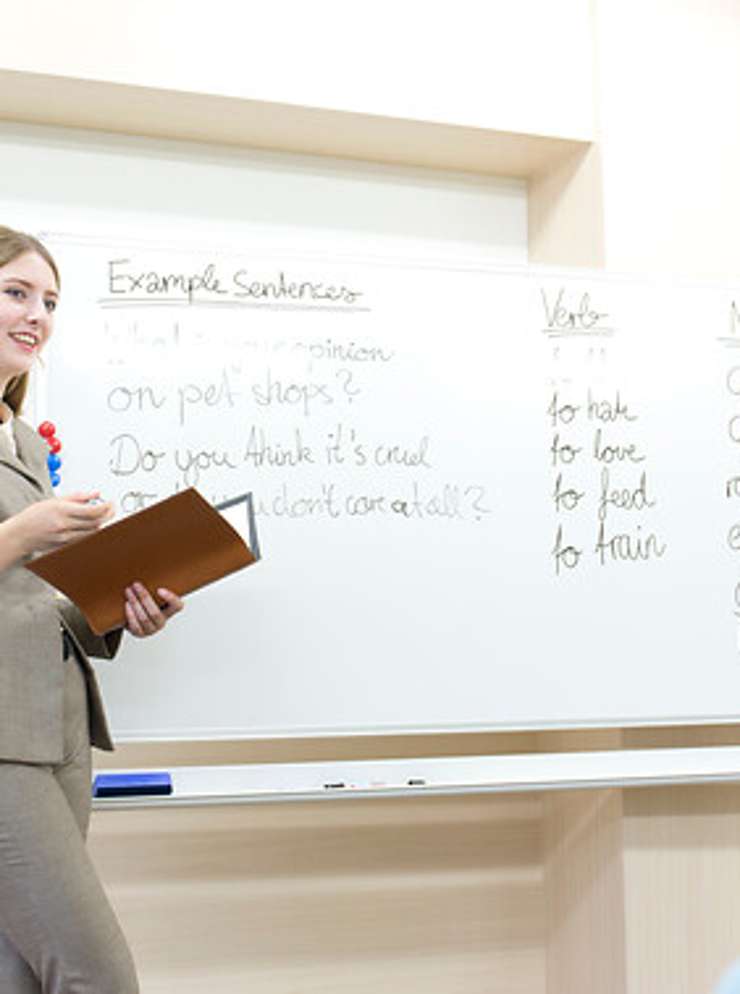 Example Sentences
What is your opinion
on pet shops?
Do you think it's cruel
or you don't care at all?
Verb
to hate
to love
to feed
to train